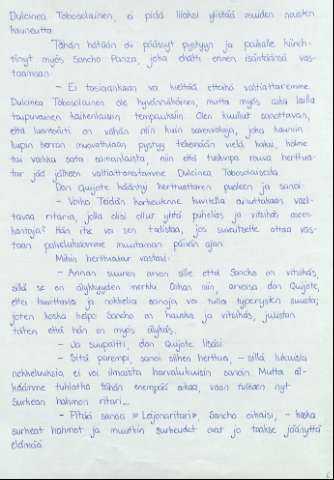 Dulcinea Tobosolainen, ei pidä liioksi ylistää muiden naisten
kauneutta.
Tähän hätään ei päässyt pystyyn ja paikalle kiireh-
tinyt myös Sancho Panza, joka ehätti ennen isäntäänsä vas-
taamaan:
– Ei tosiaankaan voi kieltää etteikö valtiattaremme
Dulcinea Tobosolainen ole hyvännäköinen, mutta myös aika lailla
taipuvainen kaikenlaisiin tempauksiin. Olen kuullut sanottavan,
että luonnötti on vähän niin kuin savenvalaja, joka kauniin
kupin kerran muovattuaan pystyy tekemään vielä kaksi, kolme
tai vaikka sata samanlaista, niin että tuskinpa rouva herttua-
tar jää jälkeen valtiattarestamme Dulcinea Tobosolaisesta.
Don Quijote kääntyi herttuattaren puoleen ja sanoi:
– Voiko Teidän korkeutenne kuvitella ainuttakaan vael-
tavaa ritaria, jolla olisi ollut yhtä puhelias ja vitsikäs aseen-
kantaja? Hän itse voi sen todistaa, jos suvaitsette ottaa vas-
taan palveluksemme muutaman päivän ajan.
Mihin herttuatar vastasi:
– Annan suuren arvon sille että Sancho on vitsikäs,
sillä se on älykkyyden merkki. Onhan niin, arvoisa don Quijote,
ettei huvittavia ja nokkelia sanoja voi tulla typerysten suusta;
joten koska kelpo Sancho on hauska ja vitsikäs, julistan
täten että hän on myös älykäs.
– Ja suupaltti, don Quijote lisäsi.
– Sitä parempi, sanoi siihen herttua, – sillä lukuisia
nokkeluuksia ei voi ilmaista harvalukuisin sanoin. Mutta äl-
käämme tuhlatko tähän enempää aikaa, vaan tulkaan nyt
Surkean hahmon ritari...
– Pitää sanoa »Leijonaritari», Sancho oikaisi, – koska
surkeat hahmot ja muutkin surkeudet ovat jo taakse jäänyttä
elämää.